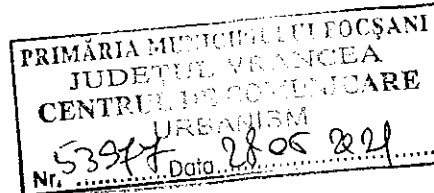 PRIMĂRIA MUNICIPIULUI FOCŞANI
JUDEŢUL VRANCEA
CENTRUL DE COMUNICARE
URBANISM
Nr. 53977 Data 28 06 2021